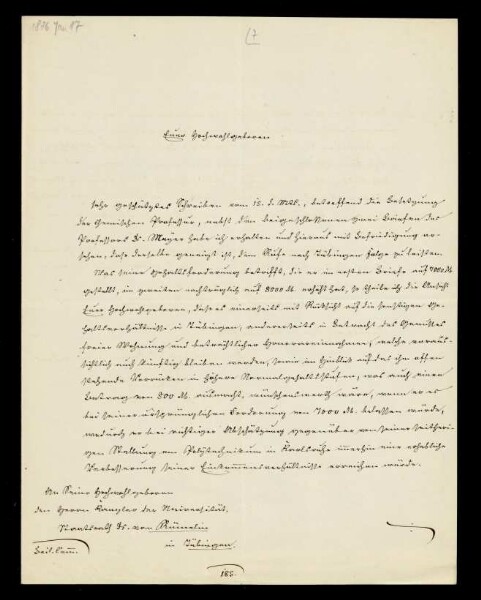 1876 Jan. 17
(7
Euer Hochwohlgeboren
sehr geschätztes Schreiben vom 12. d. Mts., betreffend die Besetzung
der chemischen Professur, nebst den beigeschlossenen zwei Briefen des
Professors Dr. Meyer habe ich erhalten und hieraus mit Befriedigung er-
sehen, dass derselbe geneigt ist, dem Rufe nach Tübingen Folge zu leisten.
Was seine Gehaltsforderung betrifft, die er im ersten Briefe auf 7000 M.
gestellt, im zweiten nachträglich auf 8000 M. erhöht hat, so theile ich die Ansicht
Euer Hochwohlgeboren, dass es einerseits mit Rücksicht auf die sonstigen Ge-
haltsverhältnisse in Tübingen, andererseits in Betracht des Genusses
freier Wohnung und beträchtlicher Honorareinnahmen, welche voraus-
sichtlich auch künftig bleiben werden, sowie im Hinblick auf das ihm offen
stehende Vorrücken in höhere Normalgehaltsstufen, was auch einen
Betrag von 800 M. ausmacht, wünschenswerth wäre, wenn er es
bei seiner ursprünglichen Forderung von 7000 M. belassen würde,
wodurch er bei richtiger Abschätzung gegenüber von seiner seitheri-
gen Stellung am Polytechnikum in Karlsruhe immerhin eine erhebliche
Verbesserung seiner Einkommensverhältnisse erreichen würde.
An Seine Hochwohlgeboren
den Herrn Kanzler der Universität,
Staatsrath Dr. von Rümelin
in Tübingen.
185.